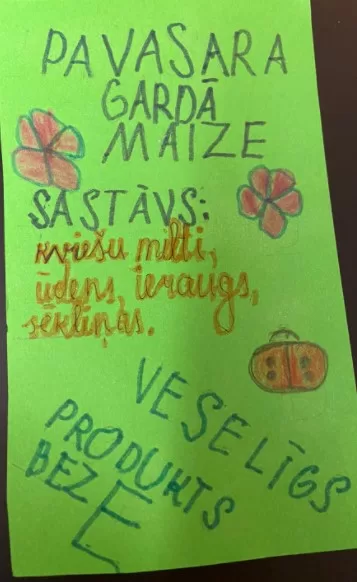 PAVASARA
GARDĀ
MAIZE
SASTĀVS:
kviešu milti,
ūdens, ieraugs,
sēkliņas.
VESELĪGS
PRODUKTS
BEZ E